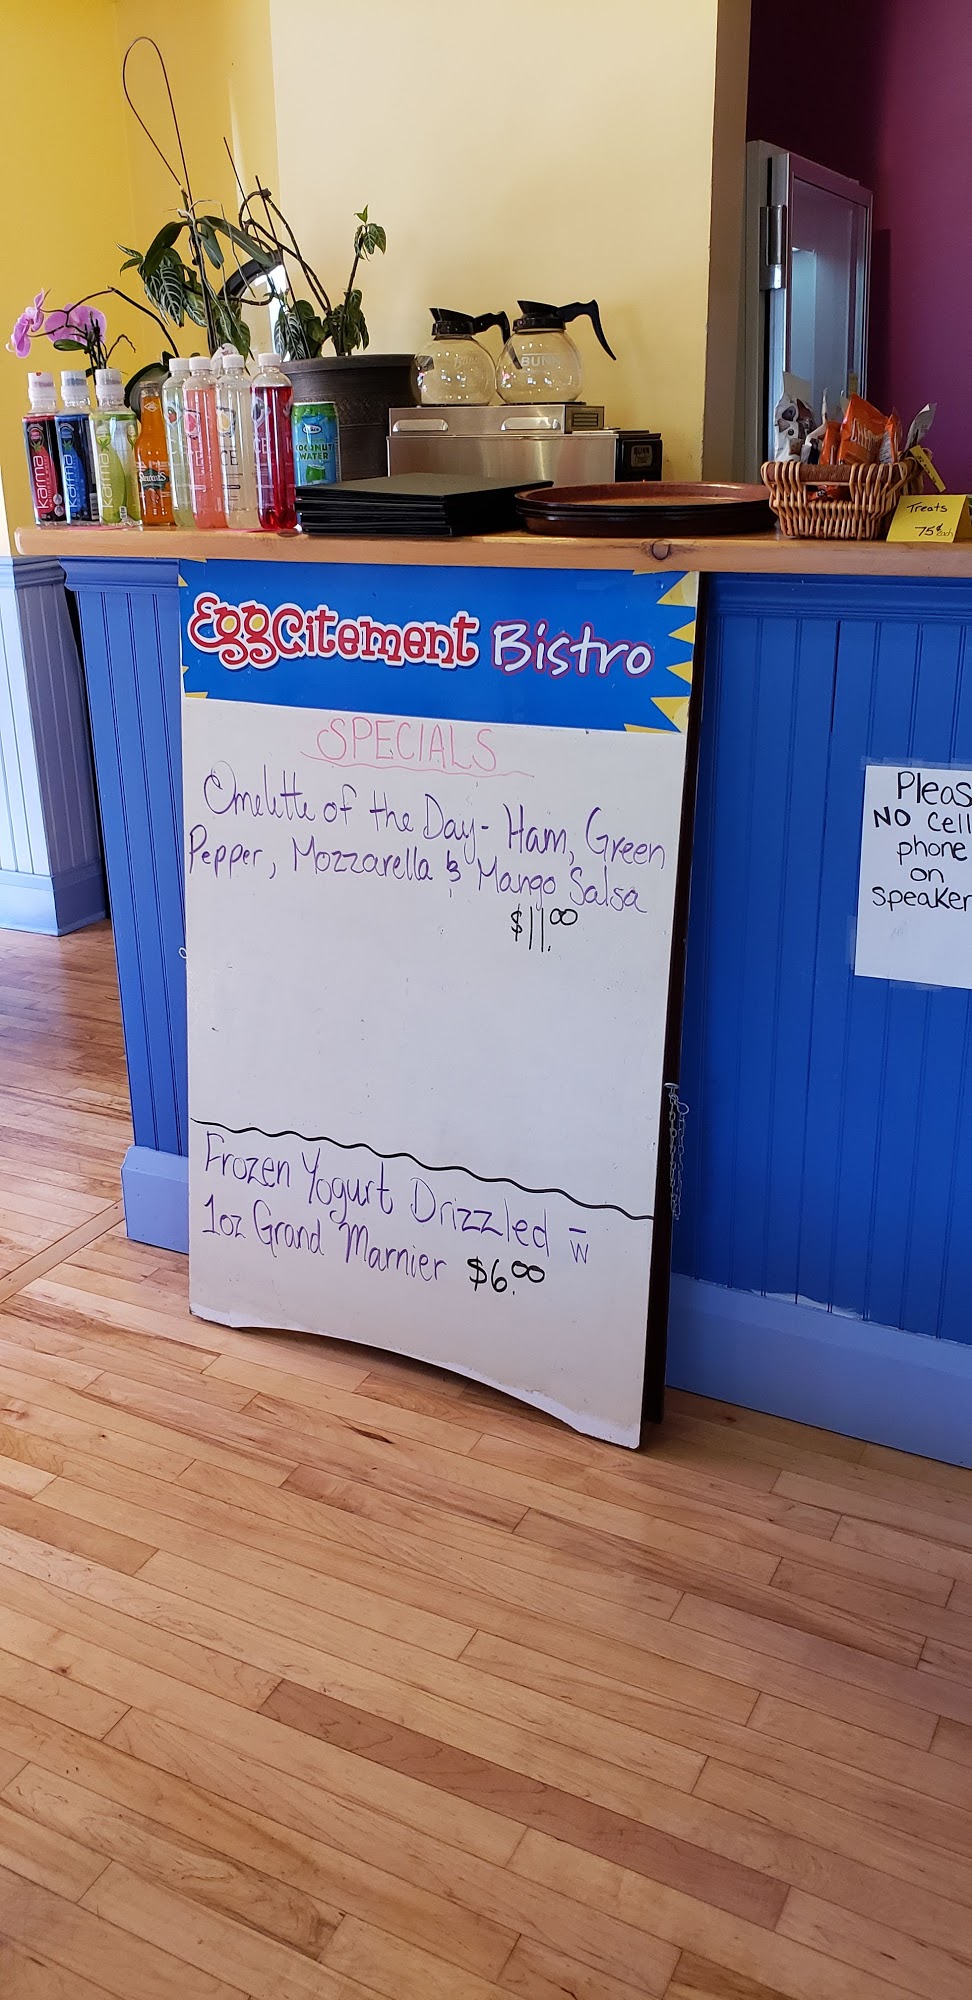 karma
karma
karma
Stewart's
ICE
ICE
COCONUT
WATER
BUNN
Treats
75¢ each
EggCitement Bistro
SPECIALS
Omelette of the Day- Ham, Green
Pepper, Mozzarella & Mango Salsa
$11.00
Frozen Yogurt Drizzled w
1oz Grand Marnier $6.00
Pleas
NO Cell
phone
on
speaker